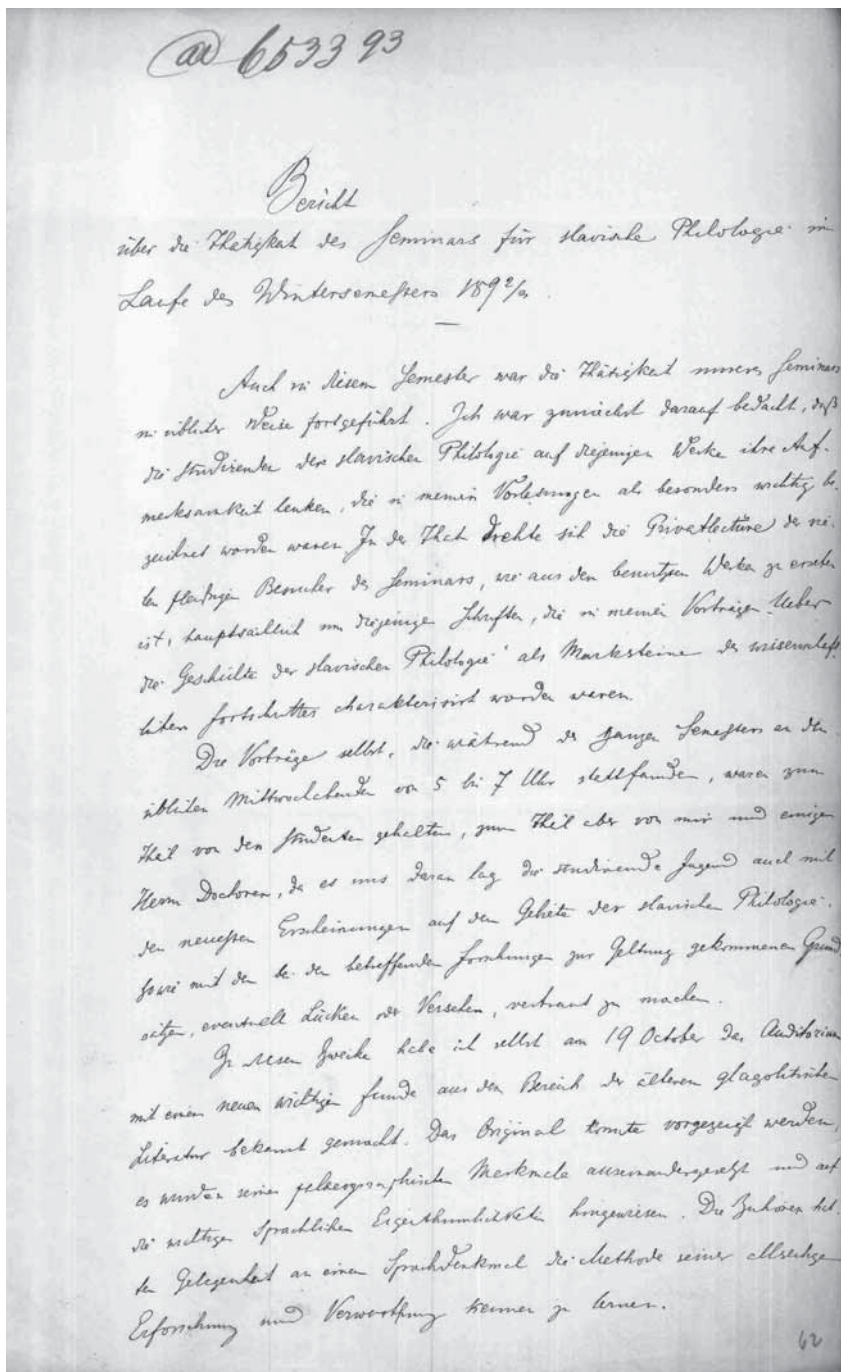 ad 6533 93
Bericht
über die Thätigkeit des Seminars für slavische Philologie im
Laufe des Wintersemesters 1892/3.
Auch in diesem Semester war die Thätigkeit unseres Seminars
in üblicher Weise fortgeführt. Ich war zunächst darauf bedacht, daß
die Studirenden der slavischen Philologie auf diejenigen Werke ihre Auf-
merksamkeit lenken, die in meinen Vorlesungen als besonders wichtig be-
zeichnet worden waren. In der That drehte sich die Privatlectüre der
fleißigen Besucher des Seminars, wie aus den benutzten Werken zu ersehen
ist, hauptsächlich um diejenigen Schriften, die in meinen Vorträgen „Ueber
die Geschichte der slavischen Philologie“ als Marksteine des wissenschaft-
lichen Fortschrittes charakterisirt worden waren.
Die Vorträge selbst, die während des ganzen Semesters an den
üblichen Mittwochabenden von 5 bis 7 Uhr stattfanden, waren zum
Theil von den Studenten gehalten, zum Theil aber von mir und einigen
Herrn Doctoren, da es uns daran lag die studirende Jugend auch mit
den neuesten Erscheinungen auf dem Gebiete der slavischen Philologie,
sowie mit den bei den betreffenden Forschungen zur Geltung gekommenen Grund
sätzen, eventuell Lücken oder Versehen, vertraut zu machen.
Zu diesem Zwecke habe ich selbst am 19 October das Auditorium
mit einem neuen wichtigen Funde aus dem Bereich der älteren glagolitischen
Literatur bekannt gemacht. Das Original konnte vorgezeigt werden,
es wurden seine palaeographischen Merkmale auseinandergesetzt und auf
die wichtigen sprachlichen Eigenthümlichkeiten hingewiesen. Die Zuhörer hat-
ten Gelegenheit an einem Sprachdenkmal die Methode seiner allseitigen
Erforschung und Verwerthung kennen zu lernen.
62